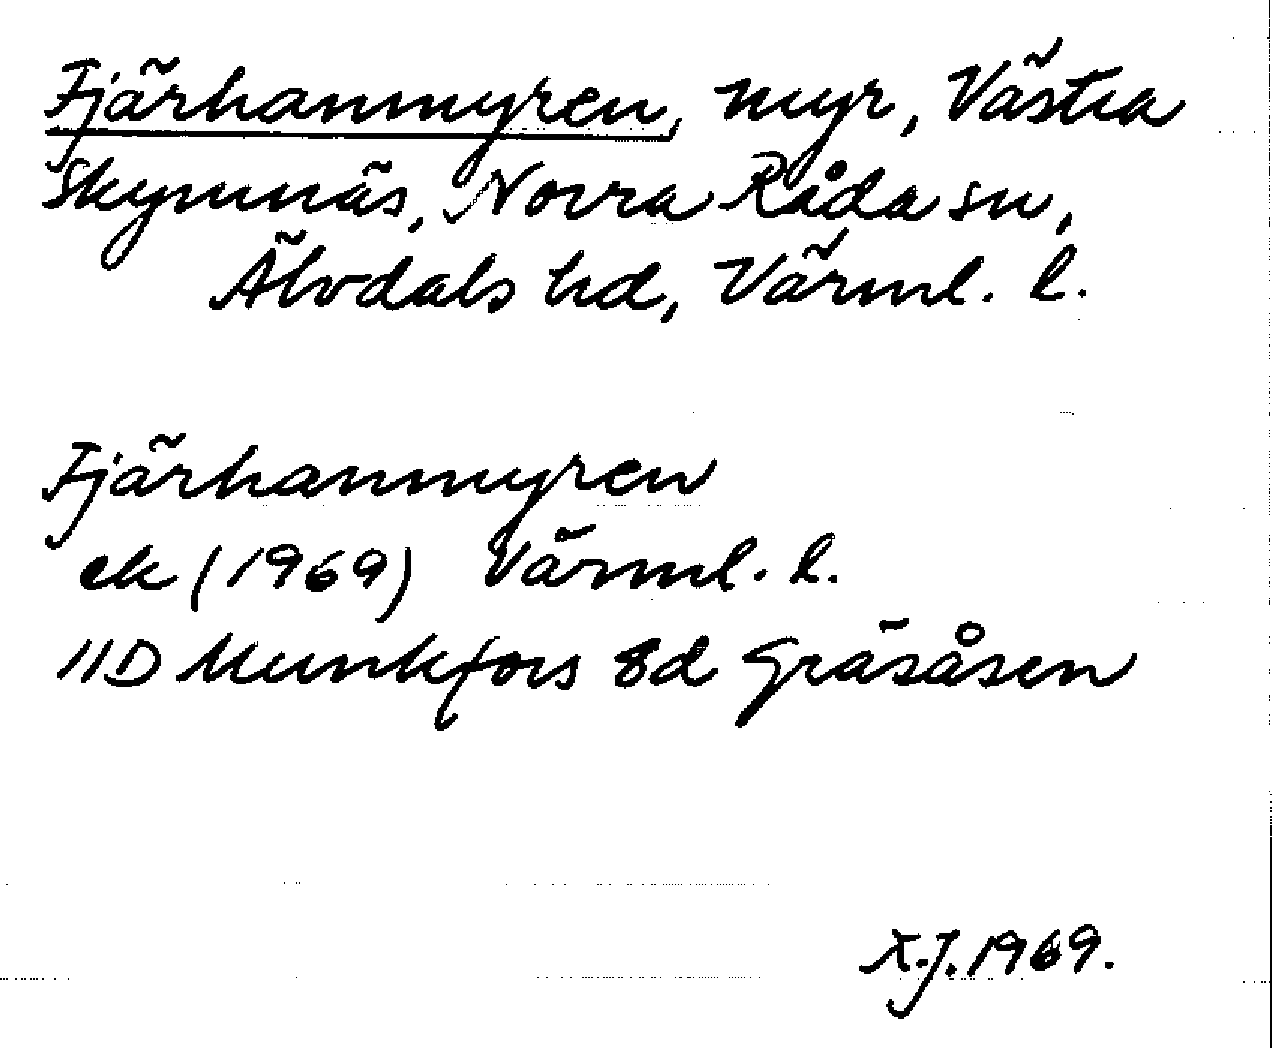 Fjärhanmyren, myr, Västra
Skymnäs, Norra Råda sn,
Älvdals hd, Värml. l.
Fjärhanmyren
ek (1969) Värml. l.
11D Munkfors 8d Gräsåsen
X.J. 1969.